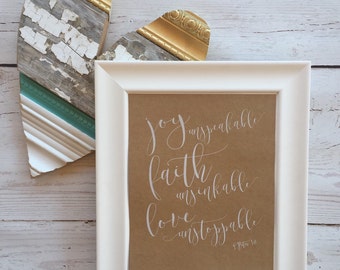 joy unspeakable
faith
unsinkable
love
unstoppable